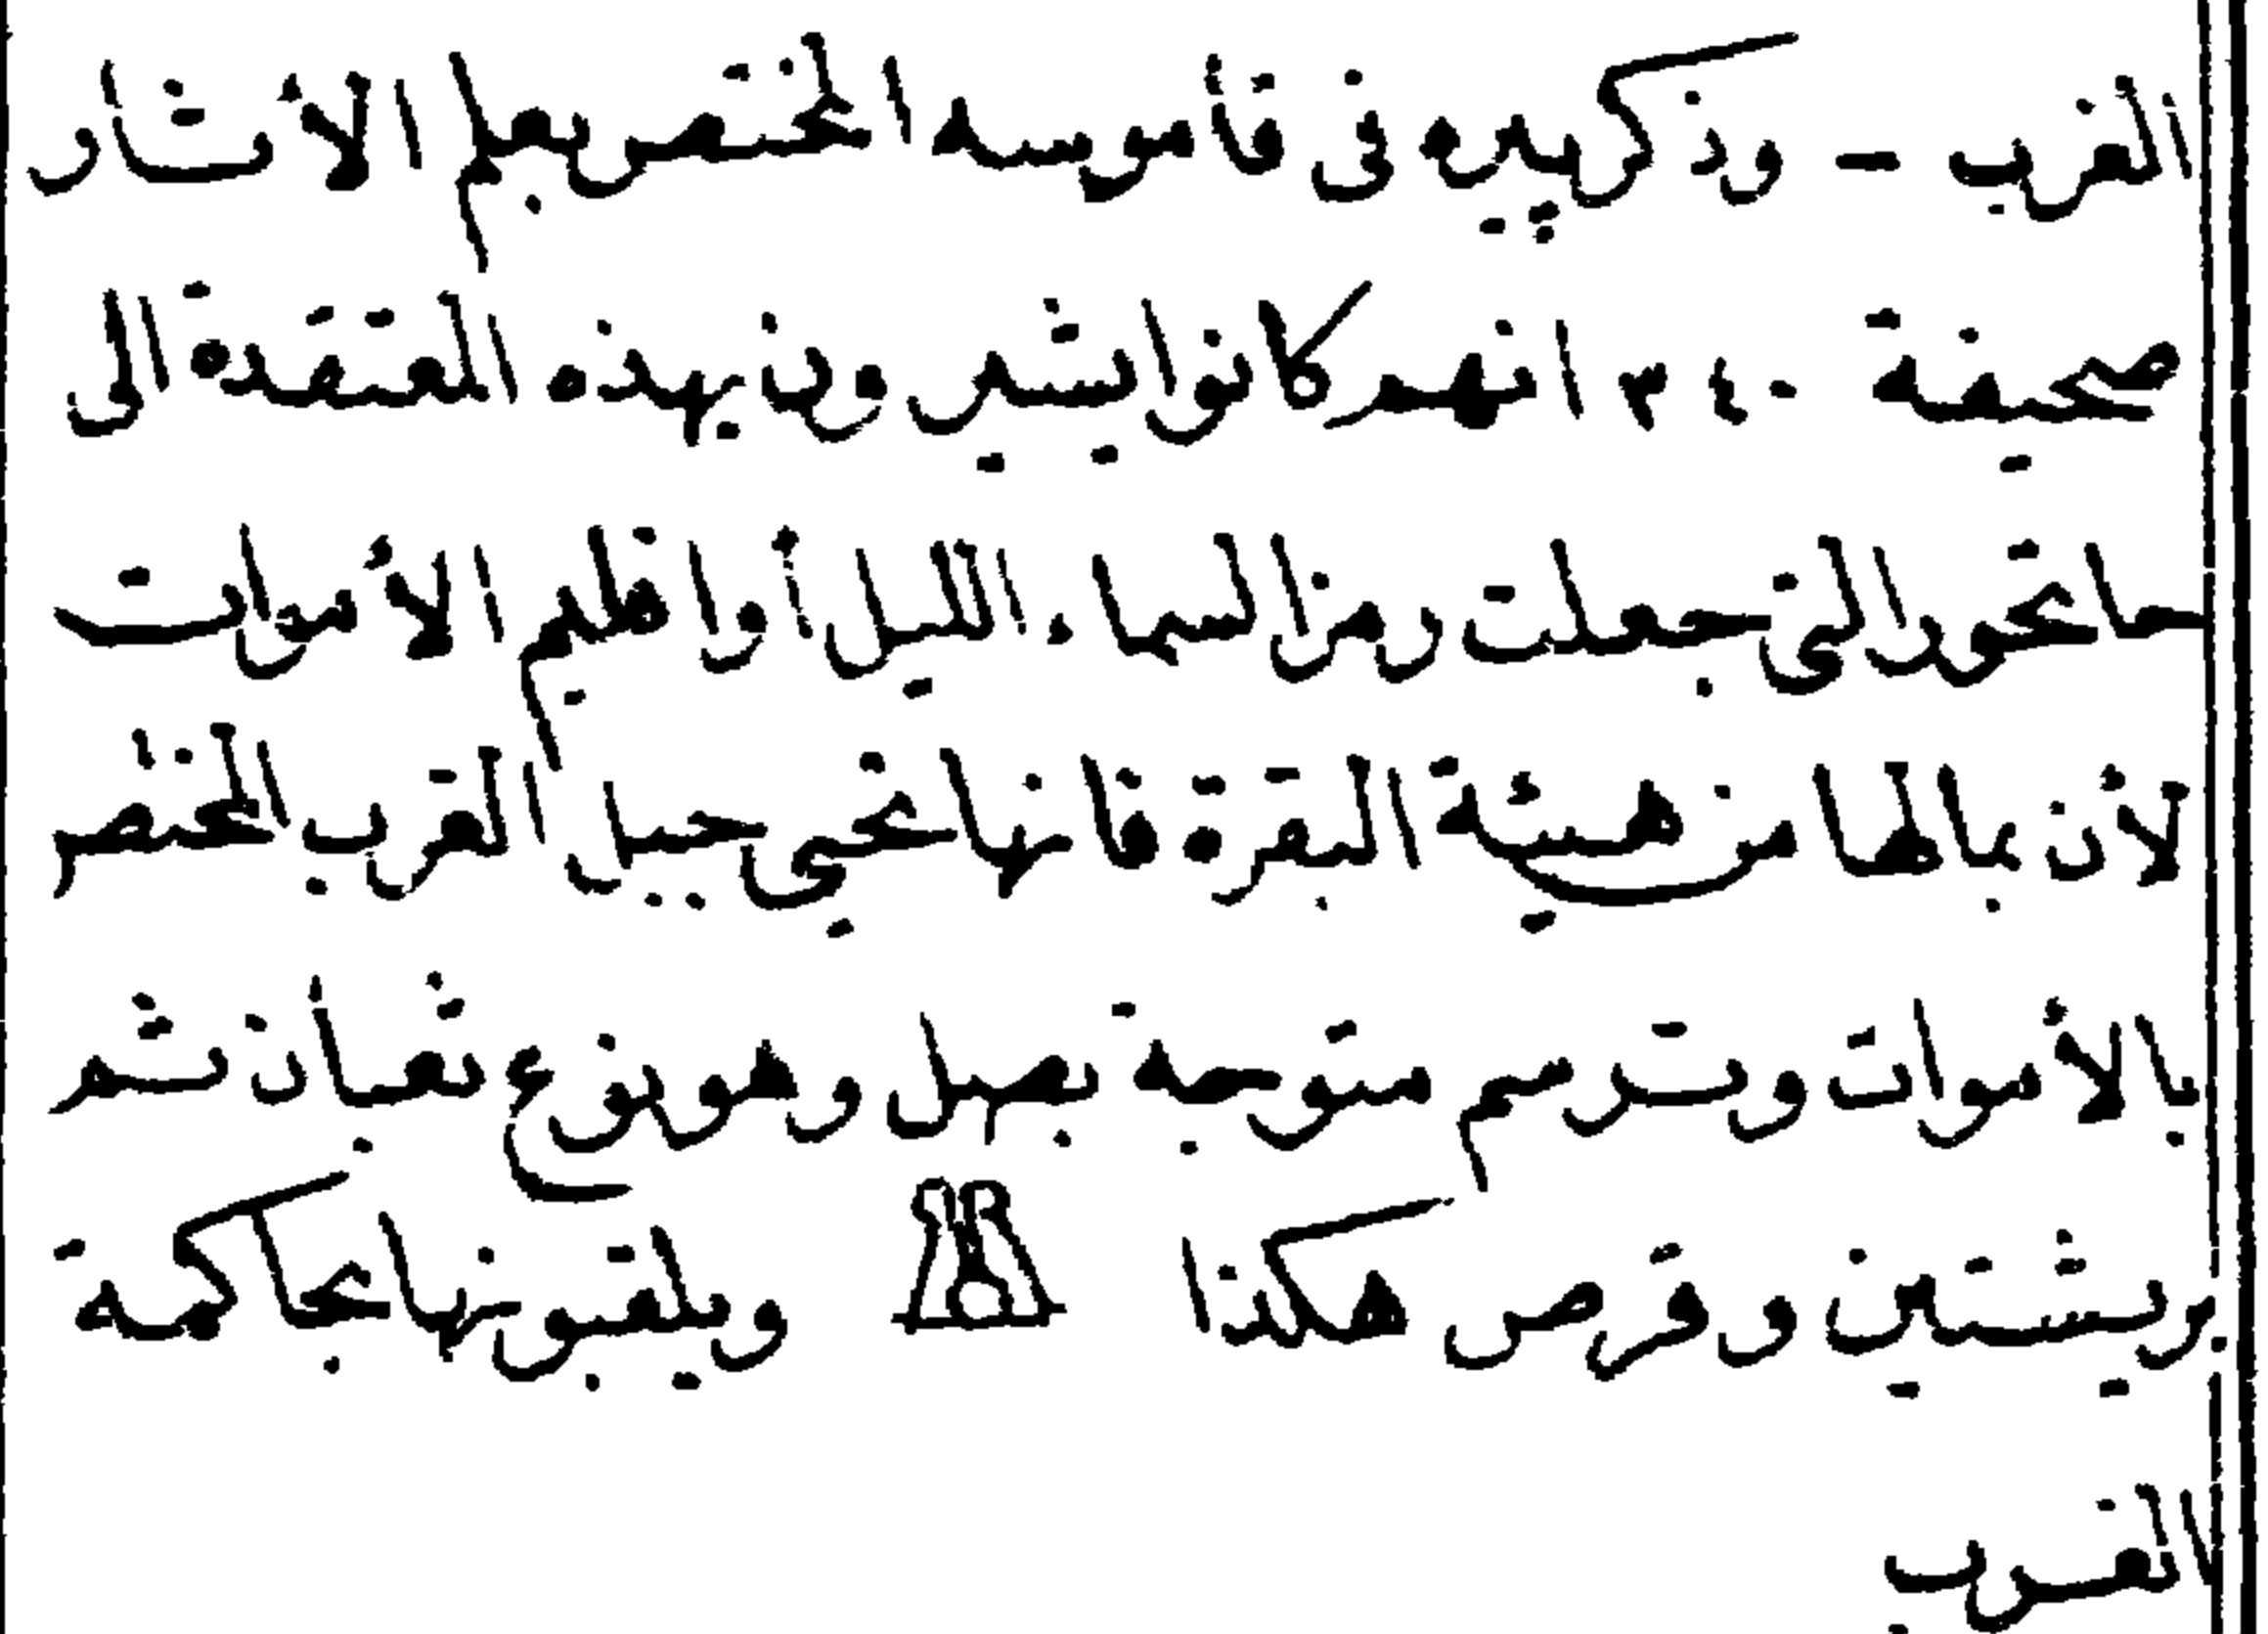 الغرب - وذكر پيره في قاموسه المختص بعلم الاثار
صحيفة ٣٤٠ انهم كانوا يشيرون بهذه المعتقدة الى
حاتحور التى جعلت رمز السماء الليل أو اقليم الأموات
لأن بمالها من هيئة البقرة فانها تحمى جبل الغرب المختص
بالأموات وترسم متوجة بصل وهو نوع ثعبان ثم
بريشتين وقرص هكذا ويلقبونها بحاكمة
الغرب